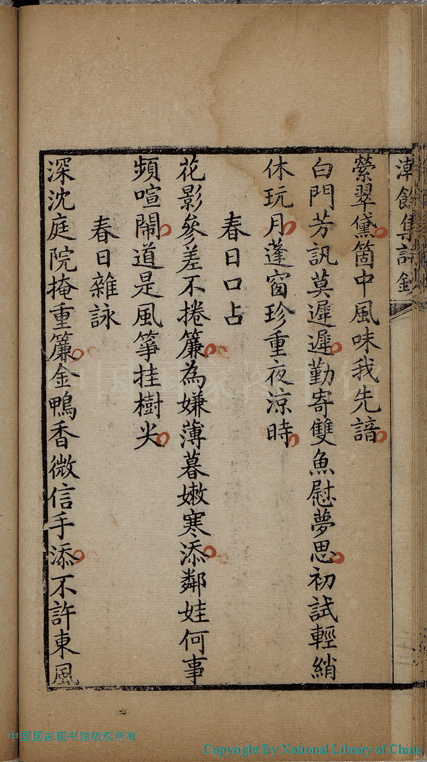 縈翠黛箇中風味我先諳
白門芳訊莫遲遲勤寄雙魚慰夢思初試輕綃
休玩月蓬窗珍重夜涼時
春日口占
花影參差不捲簾為嫌薄暮嫩寒添鄰娃何事
頻喧鬧道是風箏挂樹尖
春日雜詠
深沈庭院掩重簾金鴨香微信手添不許東風
中国国家图书馆版权所有
Copyright By National Library of China